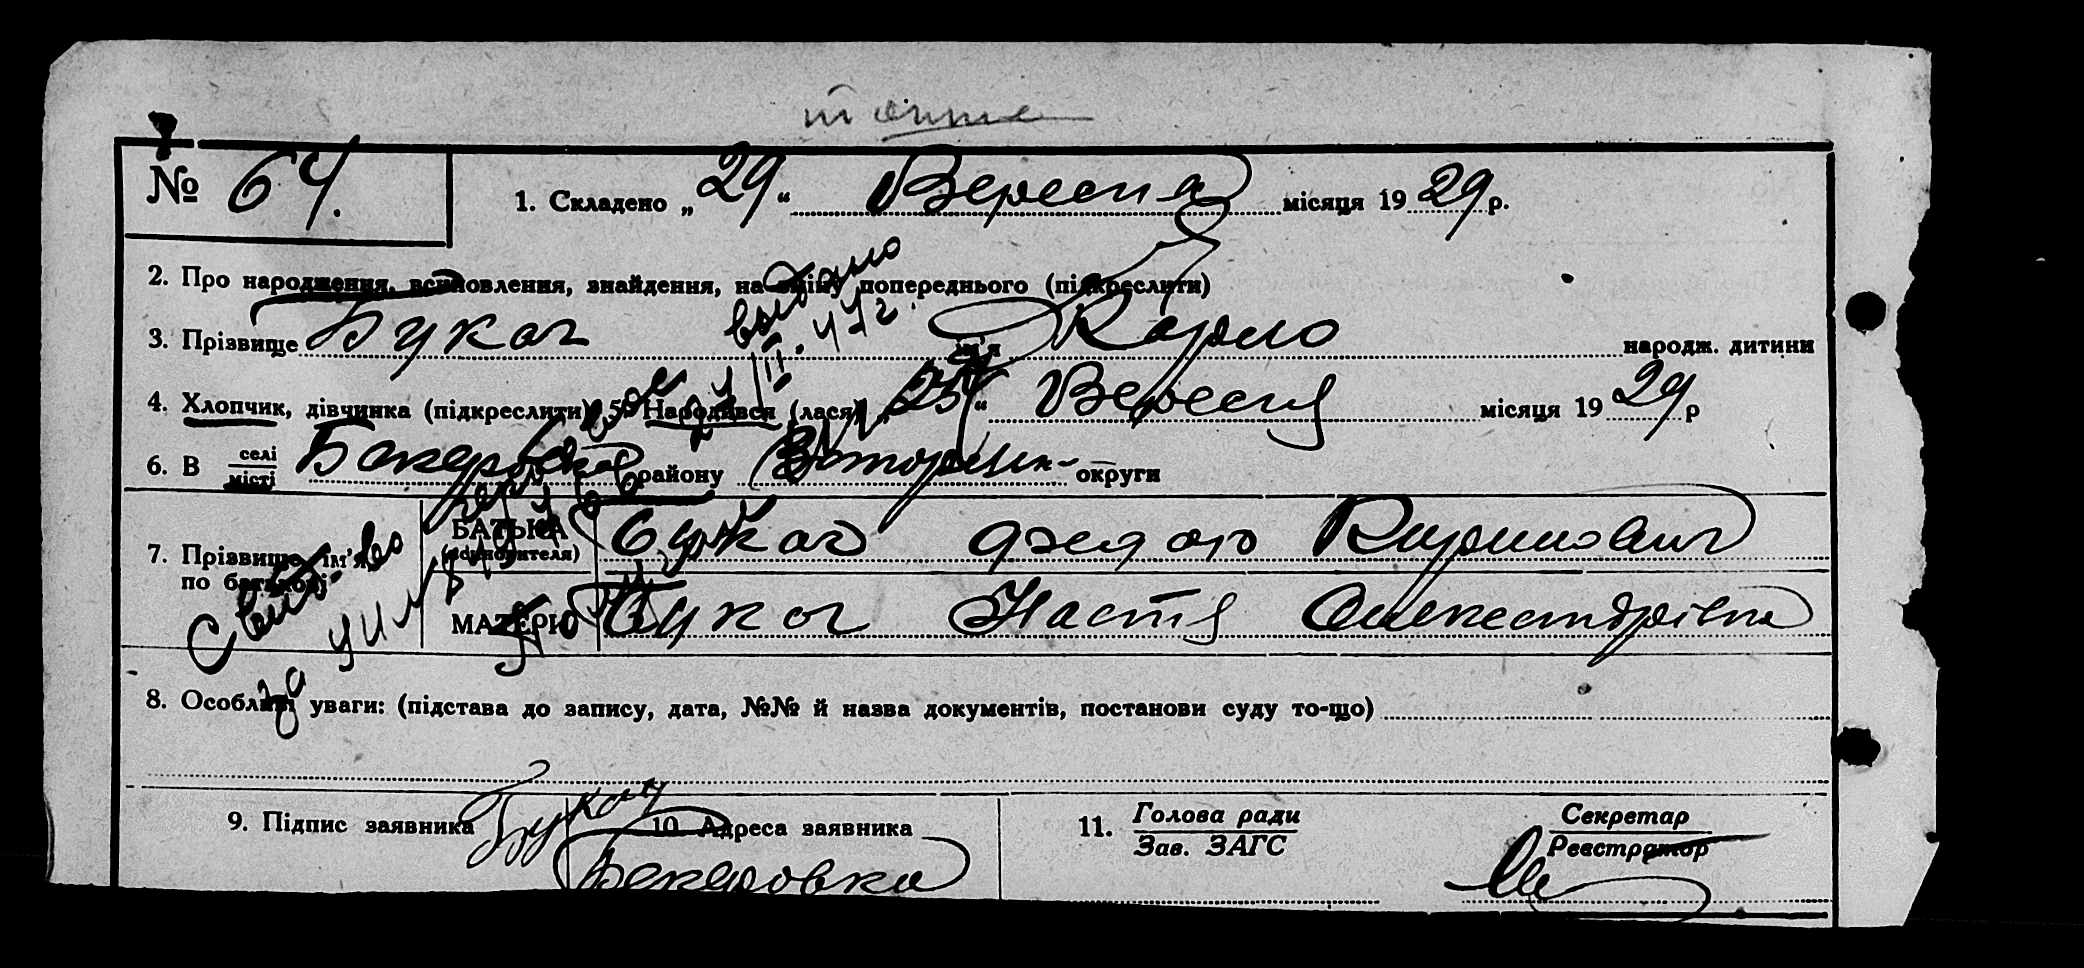 № 64. 1. Складено „29“ Вересня місяця 1929р.
2. Про народження, всиновлення, знайдення, на зміну попереднього (підкреслити)
3. Прізвище Букач ім'я Карло народж. дитини
4. Хлопчик, дівчинка (підкреслити) 5. Народився (лася) „25“ Вересня місяця 1929р
6. В селі місті району округи
7. Прізвище, ім'я, по батькові БАТЬКА (всиновителя) Букач Федот
МАТЕРИ Букач Настя Олександрівна
выдано
21/III.
Свид-во
за
8. Особливі уваги: (підстава до запису, дата, №№ й назва документів, постанови суду то-що)
9. Підпис заявника Букач 10. Адреса заявника 11. Голова ради Зав. ЗАГС Секретар Реєстратор
Бекеровка